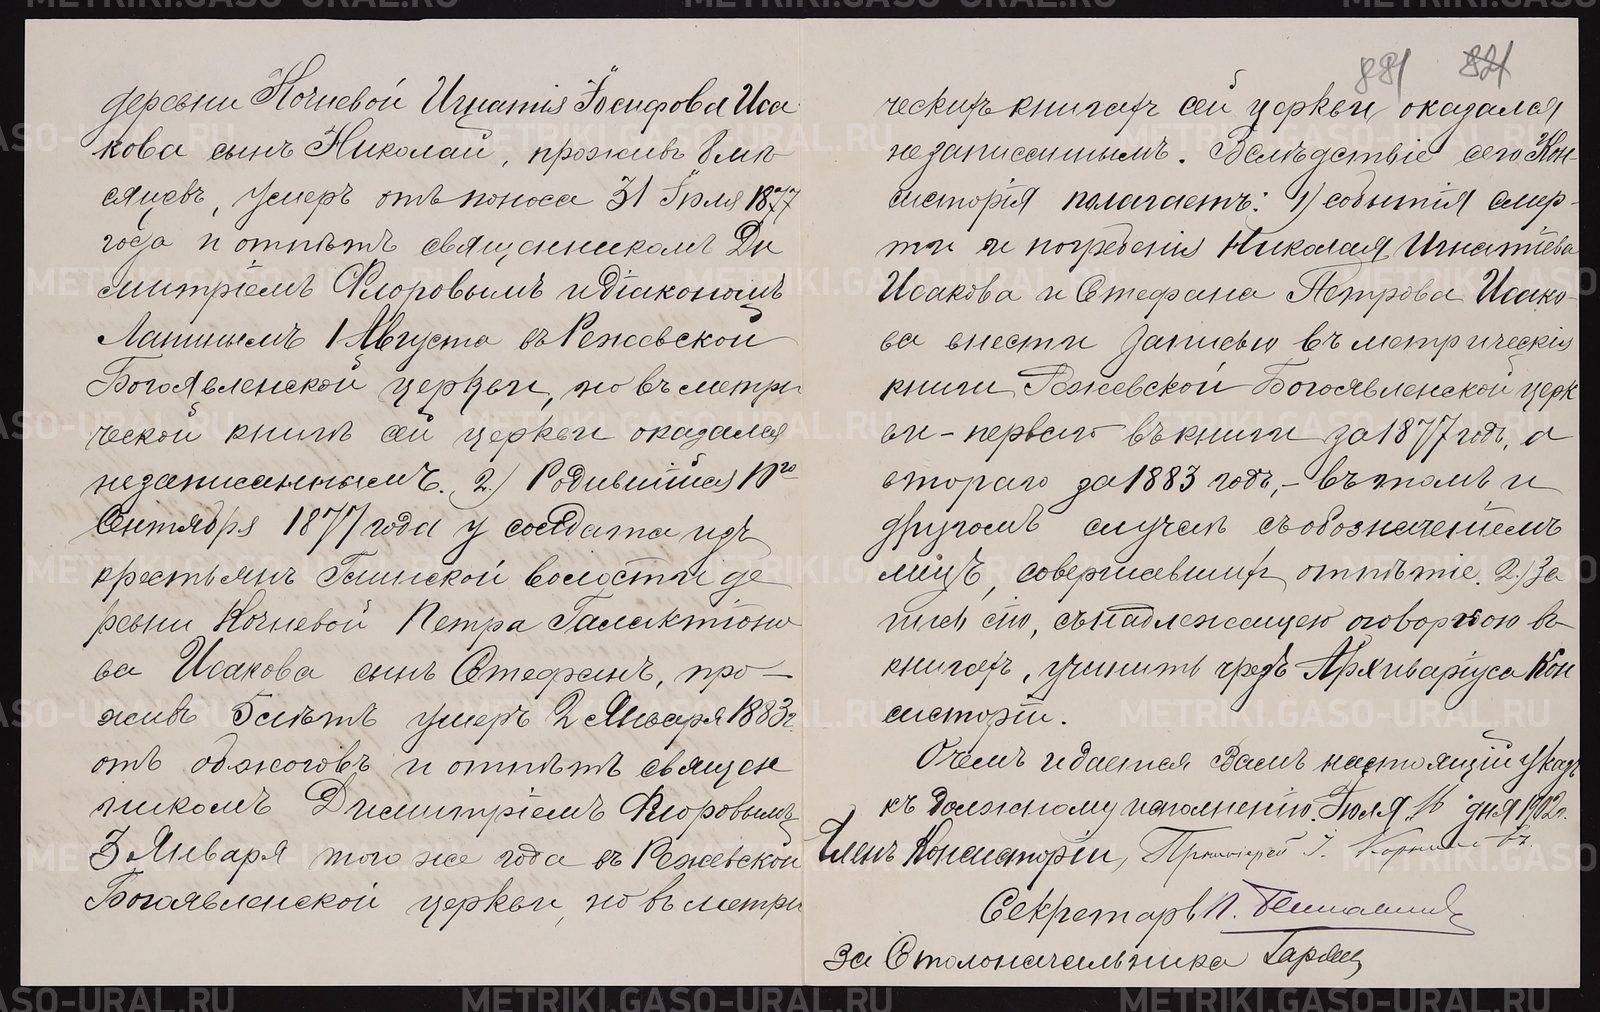 деревни Кочневой Игнатія Іосифова Иса
кова сынъ Николай, проживъ 8 мѣ
сяцевъ, умеръ отъ поноса 31 Іюля 1877
года и отпѣтъ священникомъ Ди
митріемъ Флоровымъ и діакономъ
Лапинымъ 1 Августа въ Режевской
Богоявленской церкви, но въ метри
ческой книгѣ сей церкви оказался
незаписаннымъ. 2) Родившійся
Сентября 1877 года у солдата изъ
крестьянъ Глинской волости де
ревни Кочневой Петра Галактіоно
ва Исакова сынъ Стефанъ, про–
живъ 5 лѣтъ умеръ 2 Января 1883 г.
отъ обжоговъ и отпѣтъ священ
никомъ Димитріемъ Флоровымъ
3 Января того же года въ Режевской
Богоявленской церкви, но въ метри
881 821
ческихъ книгахъ сей церкви оказался
незаписаннымъ. Вслѣдствіе сего Кон-
систорія полагаетъ: 1) событія смер-
ти и погребенія Николая Игнатіева
Исакова и Стефана Петрова Исако-
ва внести записью въ метрическія
книги Режевской Богоявленской церк
ви – перваго въ книги за 1877 годъ, а
втораго за 1883 годъ, – въ томъ и
другомъ случаѣ съ обозначеніемъ
лицъ, совершавшихъ отпѣтіе. 2) За
пись сію, съ надлежащею оговоркою въ
книгахъ, учинить чрезъ Архиваріуса Кон
систоріи.
О чемъ и дается Вамъ настоящій указъ
къ должному исполненію. Іюля 16 дня 1902 г.
Членъ Консисторіи, Протоіерей І.
Секретарь П.
За Столоначальника
METRIKI.GASO-URAL.RU